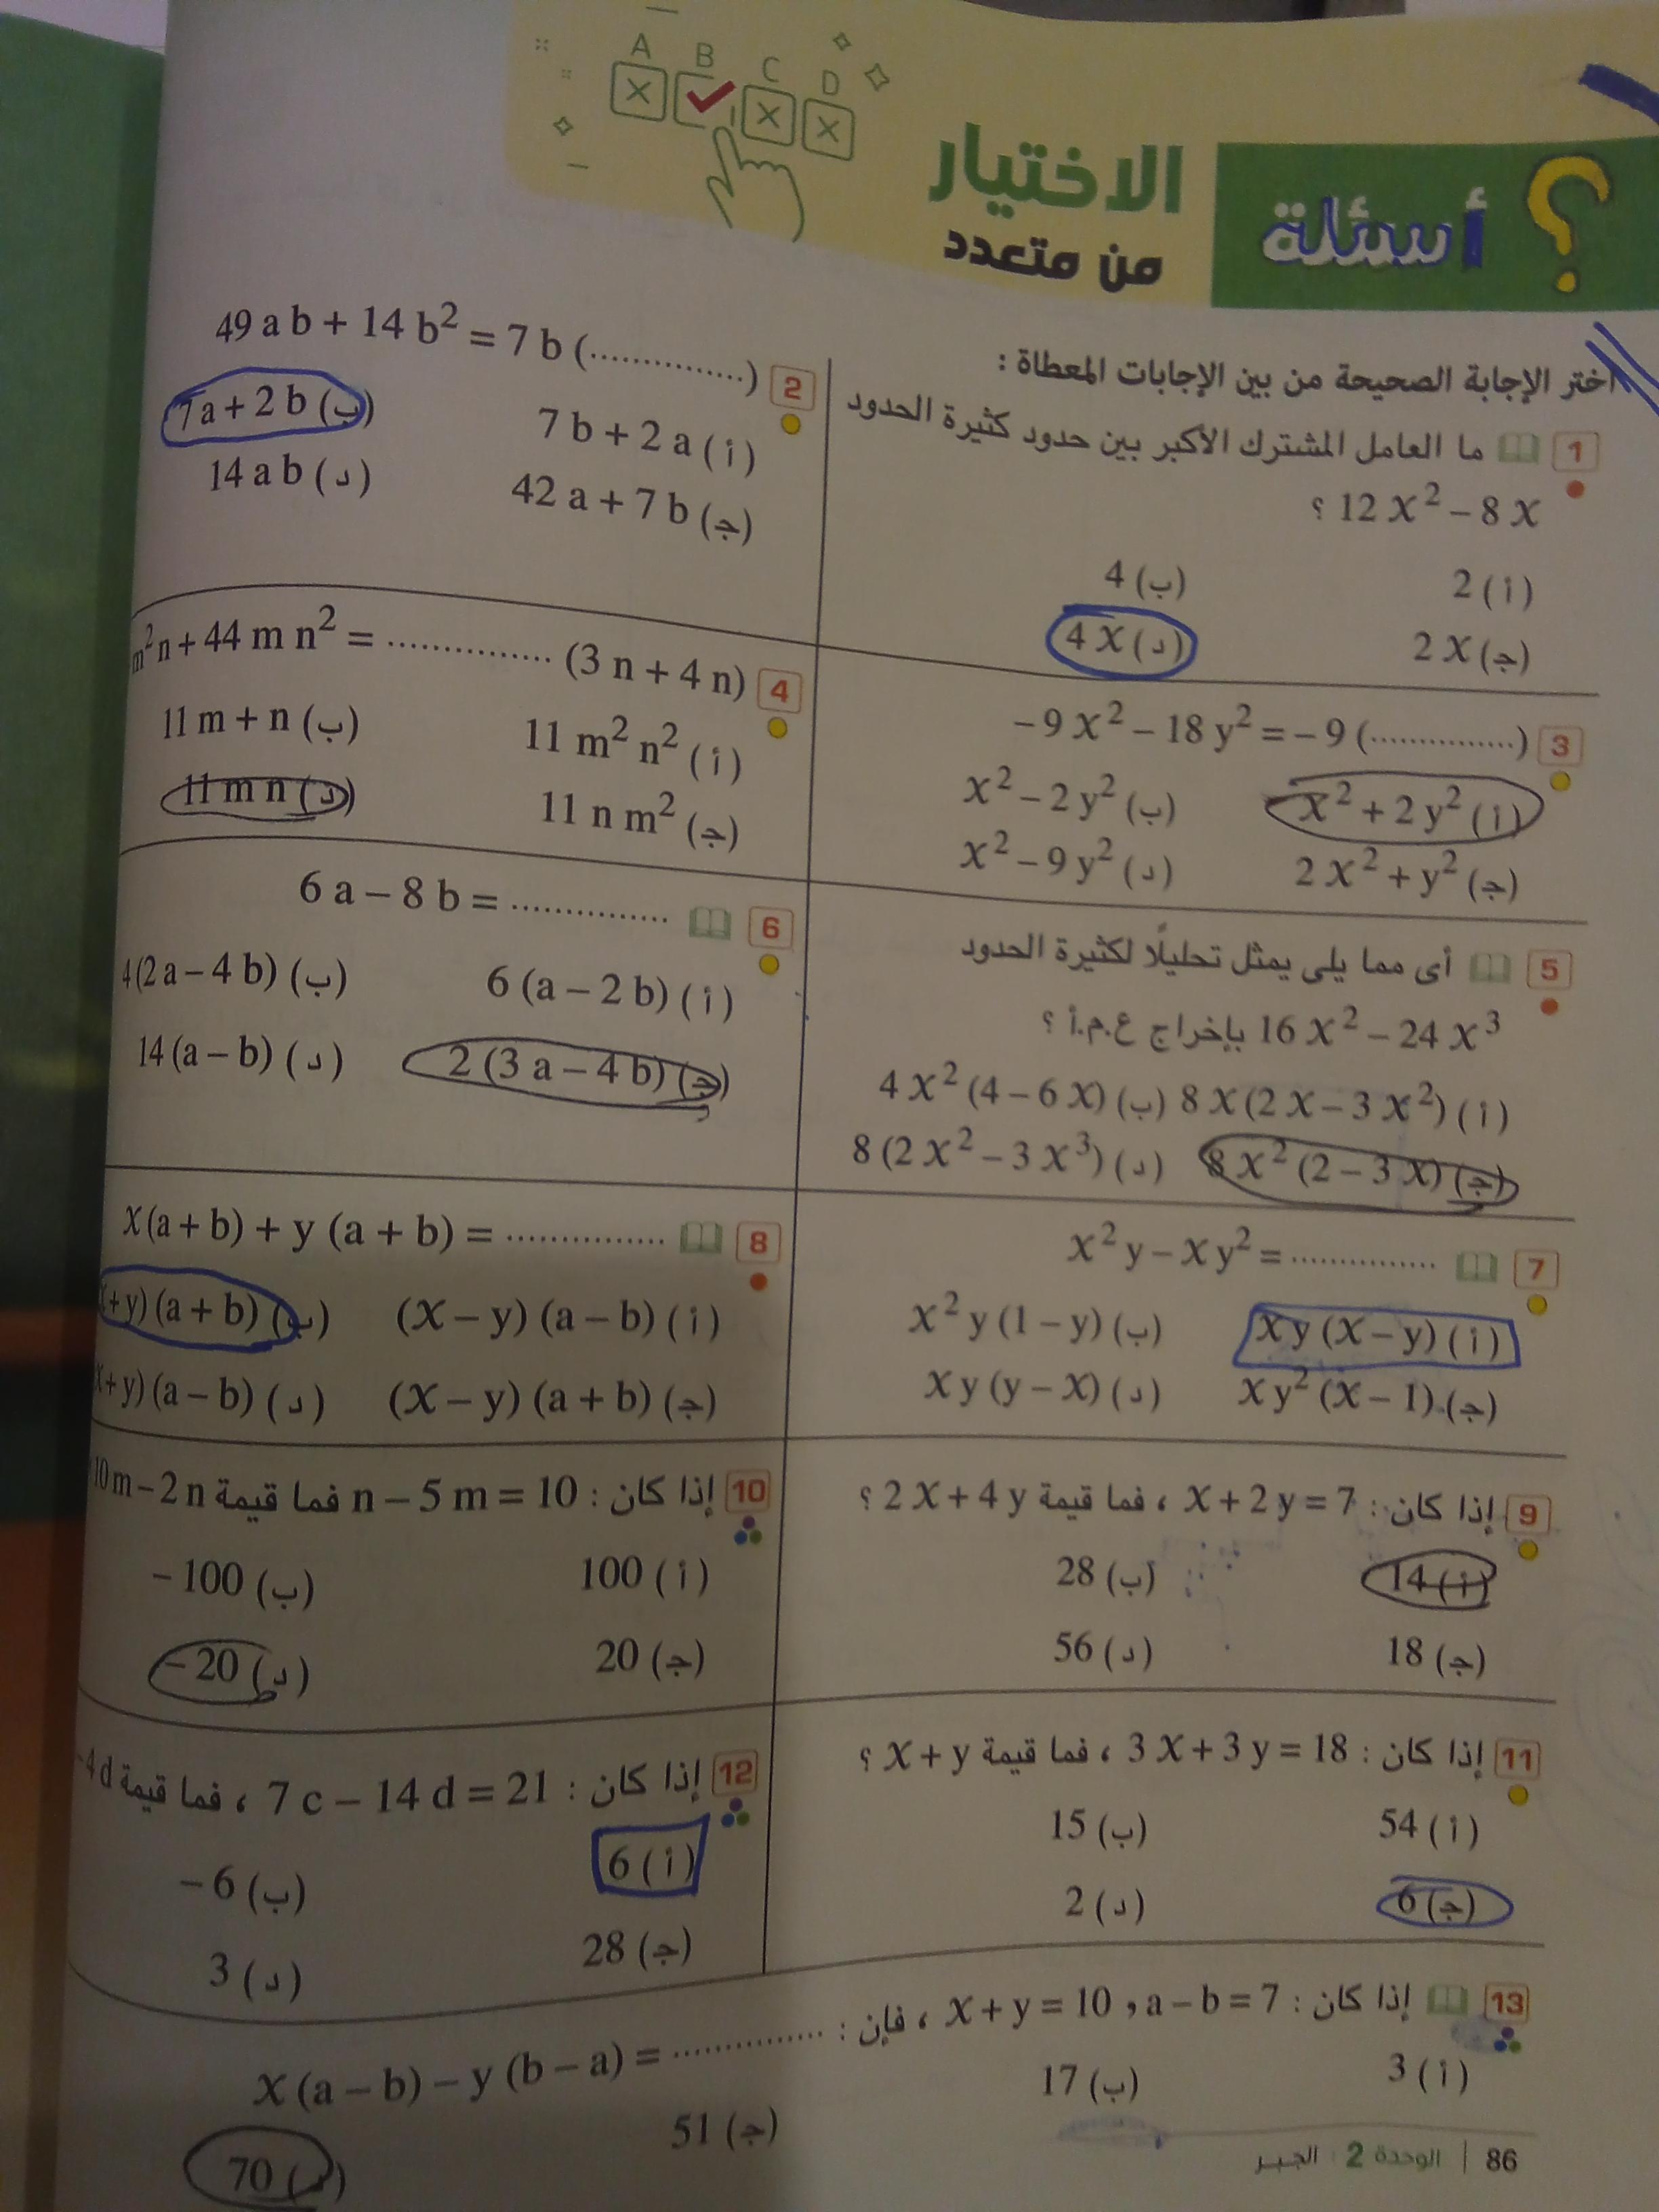 A B C D
؟ أسئلة الاختيار
من متعدد
اختر الإجابة الصحيحة من بين الإجابات المعطاة :
1 ما العامل المشترك الأكبر بين حدود كثيرة الحدود
12 x² – 8 x ؟
(أ) 2 (ب) 4
(جـ) 2 x (د) 4 x
2 49 a b + 14 b² = 7 b (..............)
(أ) 7 b + 2 a (ب) 7 a + 2 b
(جـ) 42 a + 7 b (د) 14 a b
3 – 9 x² – 18 y² = – 9 (...............)
(أ) x² + 2 y² (ب) x² – 2 y²
(جـ) 2 x² + y² (د) x² – 9 y²
4 m² n + 44 m n² = ............... (3 n + 4 n)
(أ) 11 m² n² (ب) 11 m + n
(جـ) 11 n m² (د) 11 m n
5 أى مما يلى يمثل تحليلًا لكثيرة الحدود
16 x² – 24 x³ بإخراج ع.م.أ ؟
(أ) 8 x (2 x – 3 x²) (ب) 4 x² (4 – 6 x)
(جـ) 8 x² (2 – 3 x) (د) 8 (2 x² – 3 x³)
6 6 a – 8 b = ...............
(أ) 6 (a – 2 b) (ب) 4 (2 a – 4 b)
(جـ) 2 (3 a – 4 b) (د) 14 (a – b)
7 x² y – x y² = ...............
(أ) x y (x – y) (ب) x² y (1 – y)
(جـ) x y² (x – 1) (د) x y (y – x)
8 x (a + b) + y (a + b) = ...............
(أ) (x – y) (a – b) (ب) + y) (a + b)
(جـ) (x – y) (a + b) (د) x + y) (a – b)
9 إذا كان : x + 2 y = 7 ، فما قيمة 2 x + 4 y ؟
(أ) 14 (ب) 28
(جـ) 18 (د) 56
10 إذا كان : n – 5 m = 10 فما قيمة 10 m – 2 n
(أ) 100 (ب) – 100
(جـ) 20 (د) – 20
11 إذا كان : 3 x + 3 y = 18 ، فما قيمة x + y ؟
(أ) 54 (ب) 15
(جـ) 6 (د) 2
12 إذا كان : 7 c – 14 d = 21 ، فما قيمة – 4 d
(أ) 6 (ب) – 6
(جـ) 28 (د) 3
13 إذا كان : x + y = 10 ، a – b = 7 ، فإن :
x (a – b) – y (b – a) = ...............
(أ) 3 (ب) 17 (جـ) 51 (د) 70
86 | الوحدة 2 : الجبر